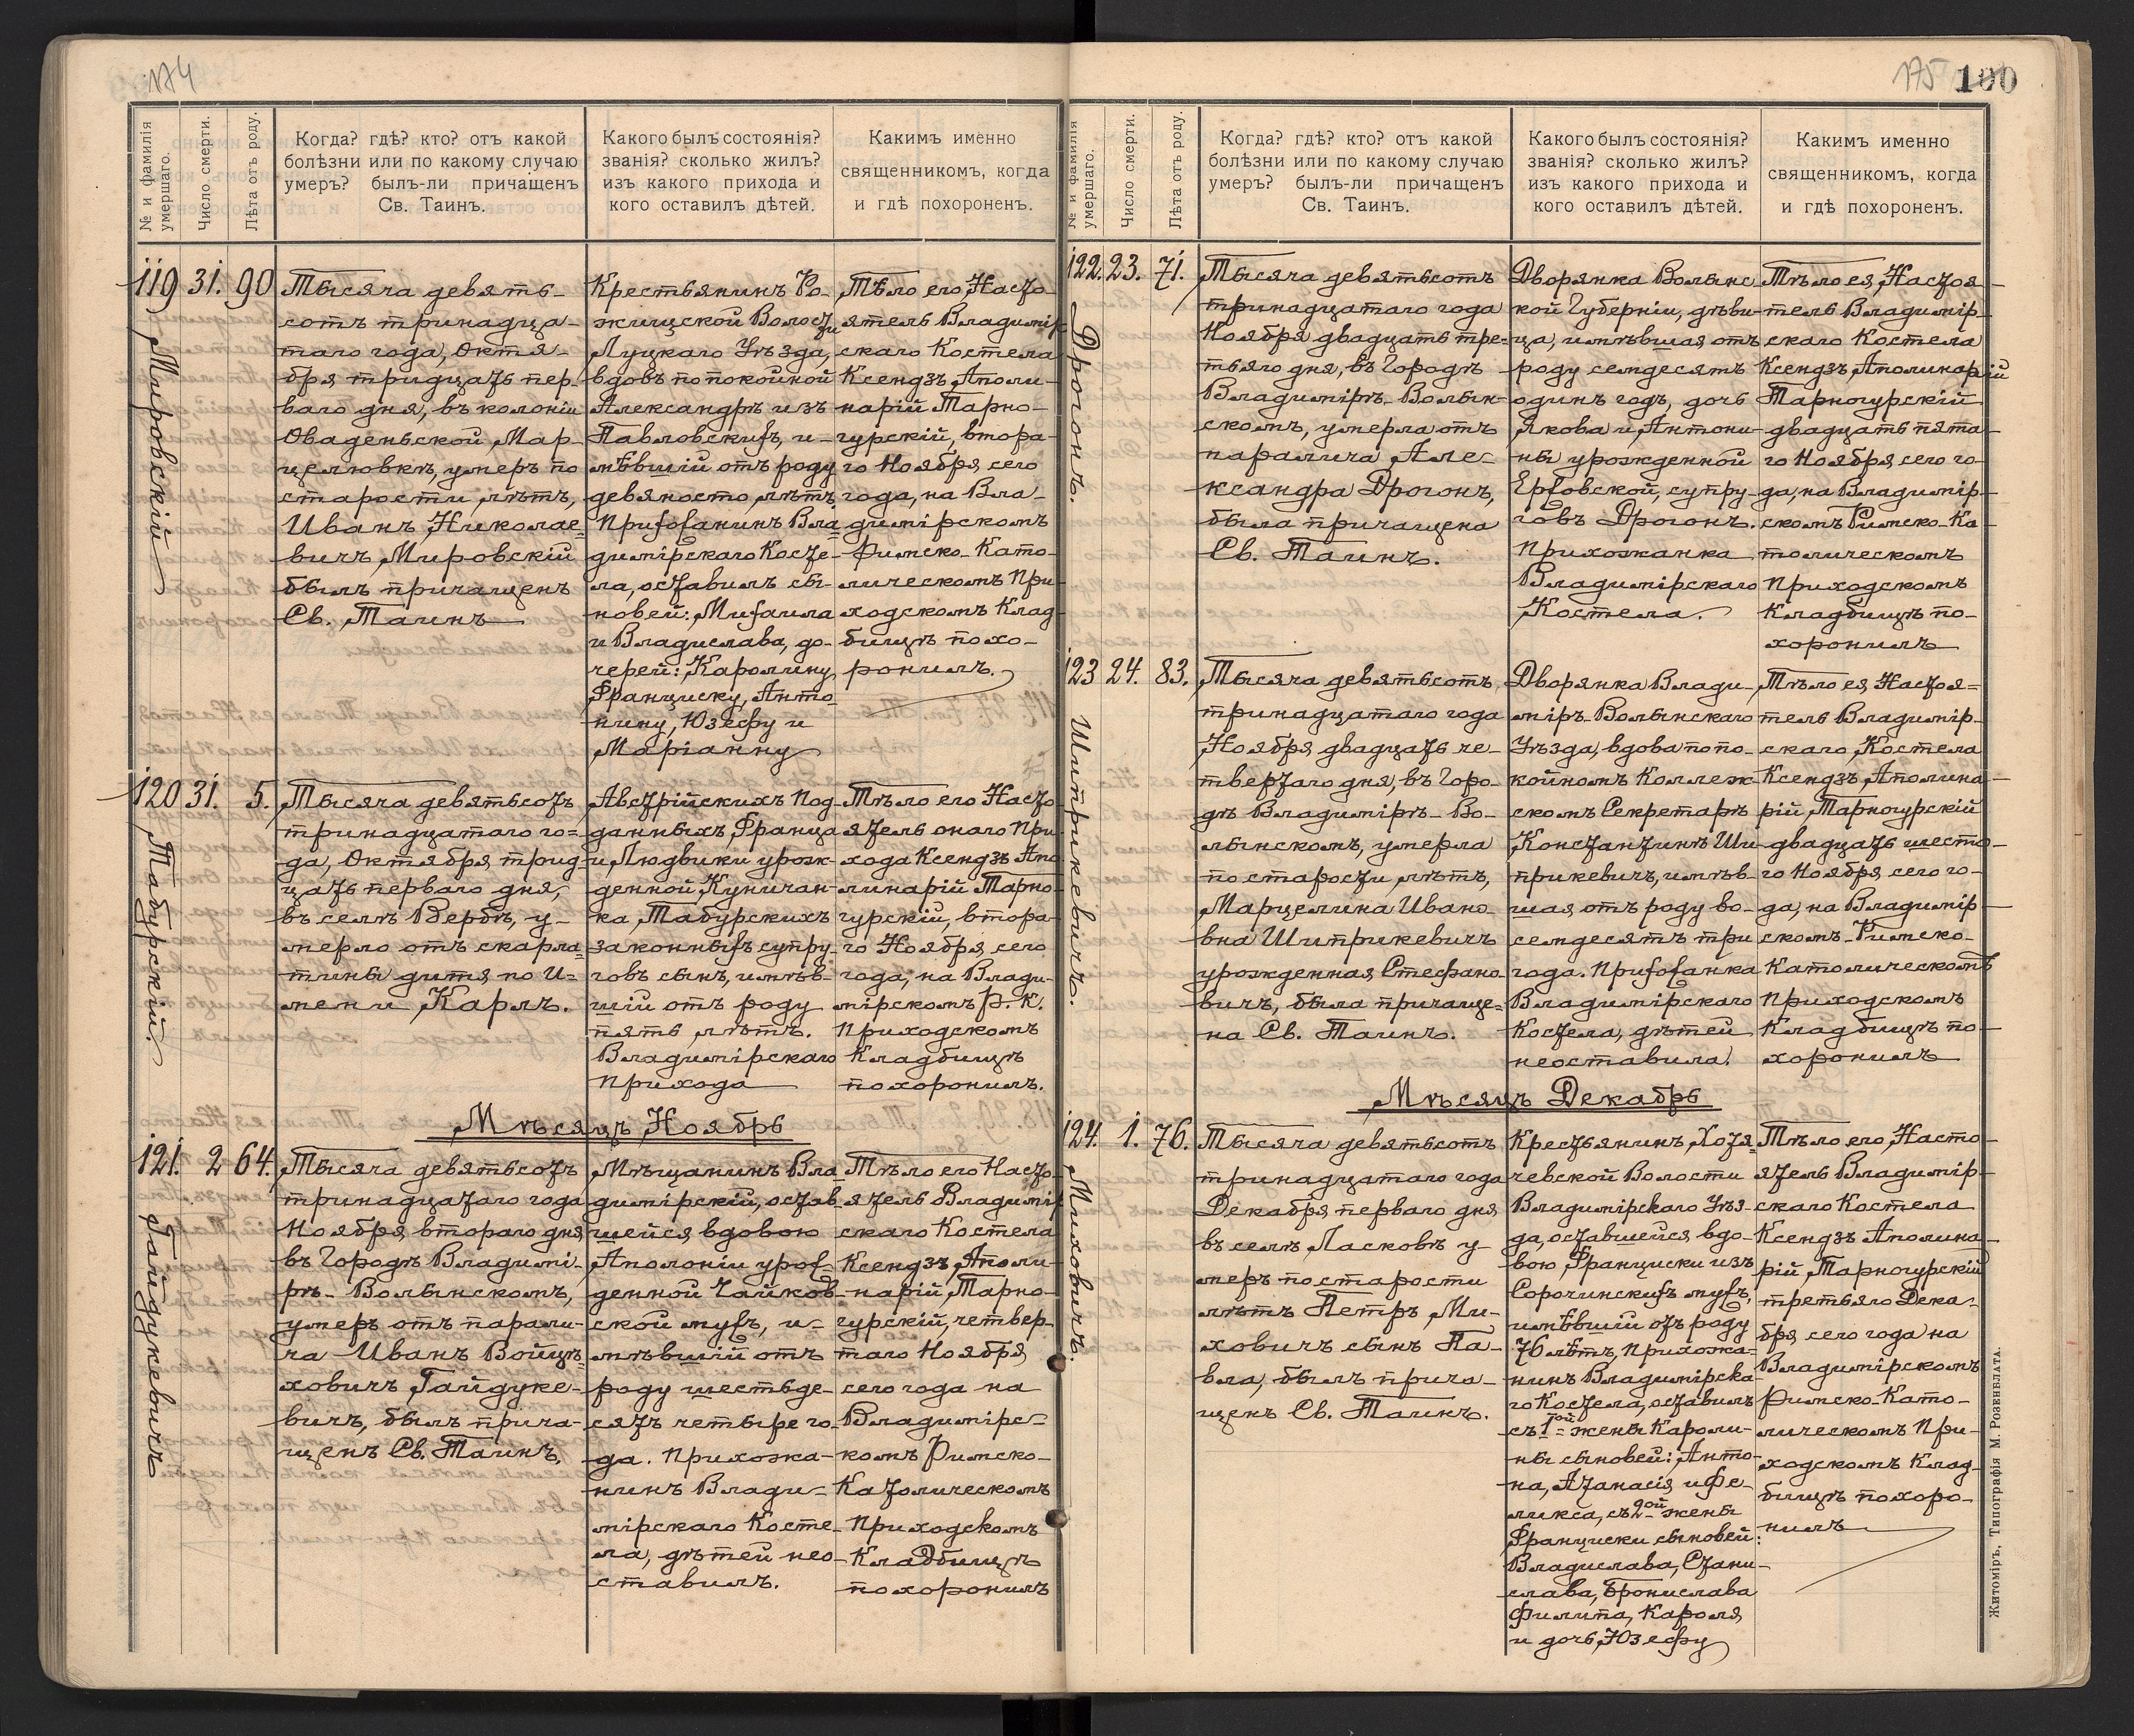 174
№ и фамилія умершаго.
Число смерти.
Лѣта отъ роду.
Когда? гдѣ? кто? отъ какой
болѣзни или по какому случаю
умеръ? былъ-ли причащенъ
Св. Таинъ.
Какого былъ состоянія?
званія? сколько жилъ?
изъ какого прихода и
кого оставилъ дѣтей.
Какимъ именно
священникомъ, когда
и гдѣ похороненъ.
119 31. 90
Мировскій
Тысяча девять-
сотъ тринадца-
таго года, Октя-
бря тридцать пер-
ваго дня, въ колоніи
Оваденьской Мар-
целювкѣ, умеръ по
старости лѣтъ,
Иванъ Николае-
вичъ Мировскій
былъ причащенъ
Св. Таинъ
Крестьянинъ Ро-
жищской Волости
Луцкаго Уѣзда,
вдовъ по покойной
Александрѣ изъ
Павловскихъ, и-
мѣвшій отъ роду
девяносто лѣтъ
Прихожанинъ Вла-
димірскаго Косте-
ла, оставилъ сы-
новей: Михаила
и Владислава, до-
черей: Каролину
Франциску, Анто-
нину, Юзефу и
Маріанну
Тѣло его Насто-
ятель Владимір-
скаго Костела
Ксендзъ Аполи-
нарій Тарно-
гурскій, втора-
го Ноября сего
года, на Вла-
димірскомъ
Римско-Като-
лическомъ При-
ходскомъ Клад-
бищѣ похо-
ронилъ.
120 31. 5.
Табурскій.
Тысяча девятьсотъ
тринадцатаго го-
да, Октября трид-
цать перваго дня,
въ селѣ Вербѣ, у-
мерло отъ скарла-
тины дитя по И-
мени Карлъ.
Австрійскихъ Под-
данныхъ, Франца
и Людвики урож-
денной Куничан-
ка, Табурскихъ
законныхъ супру-
говъ сынъ, имѣв-
шій отъ роду
пять лѣтъ.
Владимірскаго
прихода
Тѣло его Насто-
ятель онаго При-
хода Ксендзъ Апо-
линарій Тарно-
гурскій, втора-
го Ноября сего
года, на Влади-
мірскомъ Р. К.
Приходскомъ
Кладбищѣ
похоронилъ.
Мѣсяцъ Ноябрь
121. 2 64.
Гайдукевичъ
Тысяча девятьсотъ
тринадцатаго года
Ноября втораго дня
въ Городѣ Владимі-
рѣ-Волынскомъ,
умеръ отъ парали-
ча Иванъ Войцѣ-
ховичъ Гайдуке-
вичъ, былъ прича-
щенъ Св. Таинъ.
Мѣщанинъ Вла-
димірскій, остав-
шейся вдовою
Аполоніи урож-
денной Чайков-
ской мужъ, и-
мѣвшій отъ
роду шестьде-
сятъ четыре го-
да. Прихожа-
нинъ Влади-
мірскаго Косте-
ла, дѣтей нео-
ставилъ.
Тѣло его Насто-
ятель Владимір-
скаго Костела
Ксендзъ Аполи-
нарій Тарно-
гурскій, четвер-
таго Ноября
сего года на
Владимірс-
комъ Римско-
Католическомъ
Приходскомъ
Кладбищѣ
похоронилъ
175 100
№ и фамилія умершаго.
Число смерти.
Лѣта отъ роду.
Когда? гдѣ? кто? отъ какой
болѣзни или по какому случаю
умеръ? былъ-ли причащенъ
Св. Таинъ.
Какого былъ состоянія?
званія? сколько жилъ?
изъ какого прихода и
кого оставилъ дѣтей.
Какимъ именно
священникомъ, когда
и гдѣ похороненъ.
122. 23. 71.
Дрогонъ.
Тысяча девятьсотъ
тринадцатаго года
Ноября двадцать тре-
тьяго дня, въ Городѣ
Владимірѣ-Волын-
скомъ, умерла отъ
паралича Але-
ксандра Дрогонъ,
была причащена
Св. Таинъ.
Дворянка Волынс-
кой Губерніи, дѣви-
ца, имѣвшая отъ
роду семдесятъ
одинъ годъ, дочь
Якова и Антони-
ны урожденной
Ержовской, супру-
говъ Дрогонъ.
Прихожанка
Владимірскаго
Костела.
Тѣло ея, Настоя-
тель Владимір-
скаго Костела
Ксендзъ Аполинарій
Тарногурскій
двадцать пята-
го Ноября сего го-
да, на Владимір-
скомъ Римско-Ка-
толическомъ
Приходскомъ
Кладбищѣ по-
хоронилъ
123 24. 83.
Шитрикевичъ.
Тысяча девятьсотъ
тринадцатаго года
Ноября двадцать че-
твертаго дня, въ Горо-
дѣ Владимірѣ-Во-
лынскомъ, умерла
по старости лѣтъ,
Марцелина Ивано-
вна Шитрикевичъ
урожденная Стефано-
вичъ, была причаще-
на Св. Таинъ.
Дворянка Влади-
міръ-Волынскаго
Уѣзда, вдова по по-
койномъ Коллеж-
скомъ Секретарѣ
Константинѣ Ши-
трикевичъ, имѣв-
шая отъ роду во-
семдесятъ три
года. Прихожанка
Владимірскаго
Костела, дѣтей
неоставила.
Тѣло ея Настоя-
тель Владимір-
скаго Костела
Ксендзъ Аполина-
рій Тарногурскій
двадцать шесто-
го Ноября сего го-
да, на Владимір-
скомъ-Римско-
Католическомъ
Приходскомъ
Кладбищѣ по-
хоронилъ
Мѣсяцъ Декабрь
124. 1. 76.
Миховичъ.
Тысяча девятьсотъ
тринадцатаго года
Декабря перваго дня
въ селѣ Ласковѣ у-
меръ по старости
лѣтъ Петръ Ми-
ховичъ сынъ Па-
вла, былъ прича-
щенъ Св. Таинъ.
Крестьянинъ, Хотя-
чевской Волости
Владимірскаго Уѣз-
да, оставшейся вдо-
вою, Франциски изъ
Сорочинскихъ мужъ,
имѣвшій отъ роду
76 лѣтъ, Прихожа-
нинъ Владимірска-
го Костела, оставилъ
съ 1-ой жены Кароли-
ны сыновей: Анто-
на, Атанасія и Фе-
ликса, съ 2-ой жены
Франциски сыновей:
Владислава, Стани-
слава, Бронислава
Филипа, Кароля
и дочь, Юзефу
Тѣло его, Насто-
ятель Владимір-
скаго Костела
Ксендзъ Аполина-
рій Тарногурскій
третьяго Дека-
бря сего года на
Владимірскомъ
Римско-Като-
лическомъ При-
ходскомъ Клад-
бищѣ похоро-
нилъ
Житоміръ, Типографія М. Розенблата.